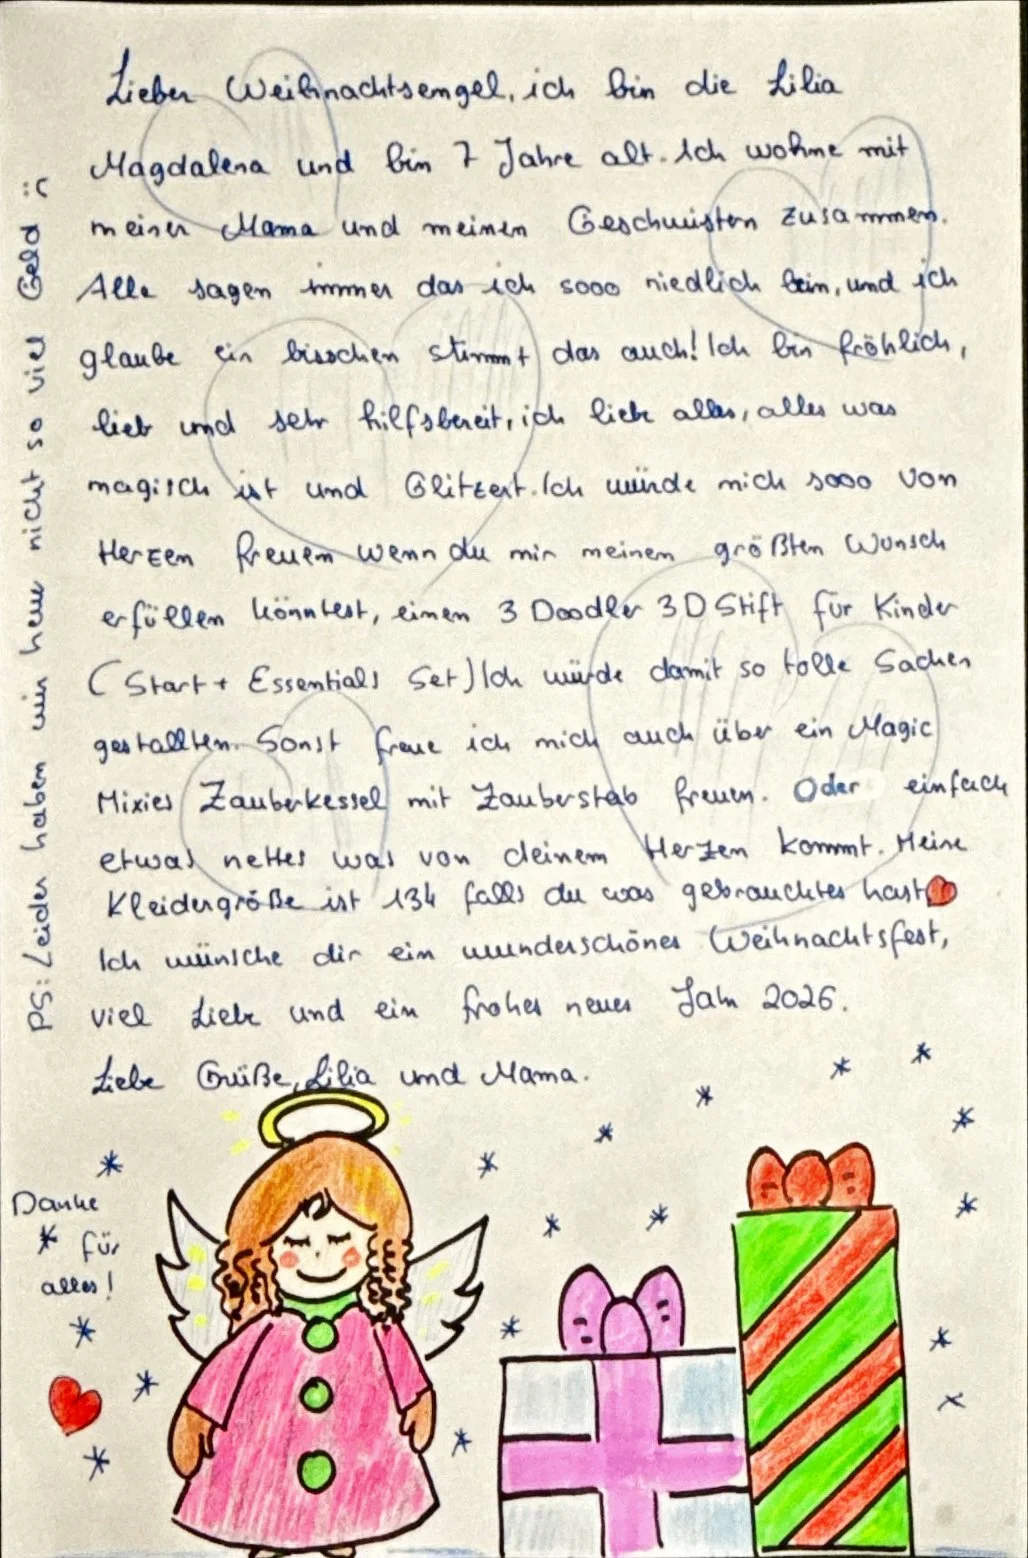 Lieber Weihnachtsengel, ich bin die Lilia
Magdalena und bin 7 Jahre alt. Ich wohne mit
meiner Mama und meinen Geschwistern zusammen.
Alle sagen immer das ich sooo niedlich bin, und ich
glaube ein bisschen stimmt das auch! Ich bin fröhlich,
lieb und sehr hilfsbereit, ich liebe alles, alles was
magisch ist und Glitzert. Ich würde mich sooo von
Herzen freuen wenn du mir meinen größten Wunsch
erfüllen könntest, einen 3 Doodler 3D Stift für Kinder
(Start + Essentials Set) Ich würde damit so tolle Sachen
gestallten. Sonst freue ich mich auch über ein Magic
Mixies Zauberkessel mit Zauberstab freuen. Oder einfach
etwas nettes was von deinem Herzen kommt. Meine
Kleidergröße ist 134 falls du was gebrauchtes hast
Ich wünsche dir ein wunderschönes Weihnachtsfest,
viel Liebe und ein frohes neues Jahr 2026.
Liebe Grüße, Lilia und Mama.
PS: Leider haben wir heuer nicht so viel Geld :(
Danke
für
alles!